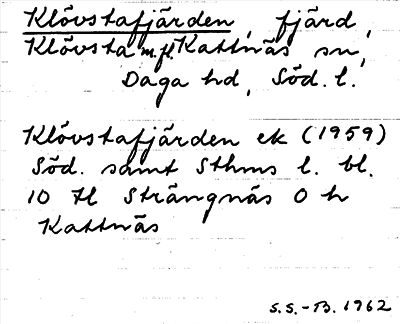 Klövstafjärden, fjärd,
Klövsta m.fl. Kattnäs sn,
Daga hd, Söd. l.
Klövstafjärden ek (1959)
Söd. samt Sthms l. bl.
10 Hl Strängnäs O h
Kattnäs
S.S.-B. 1962